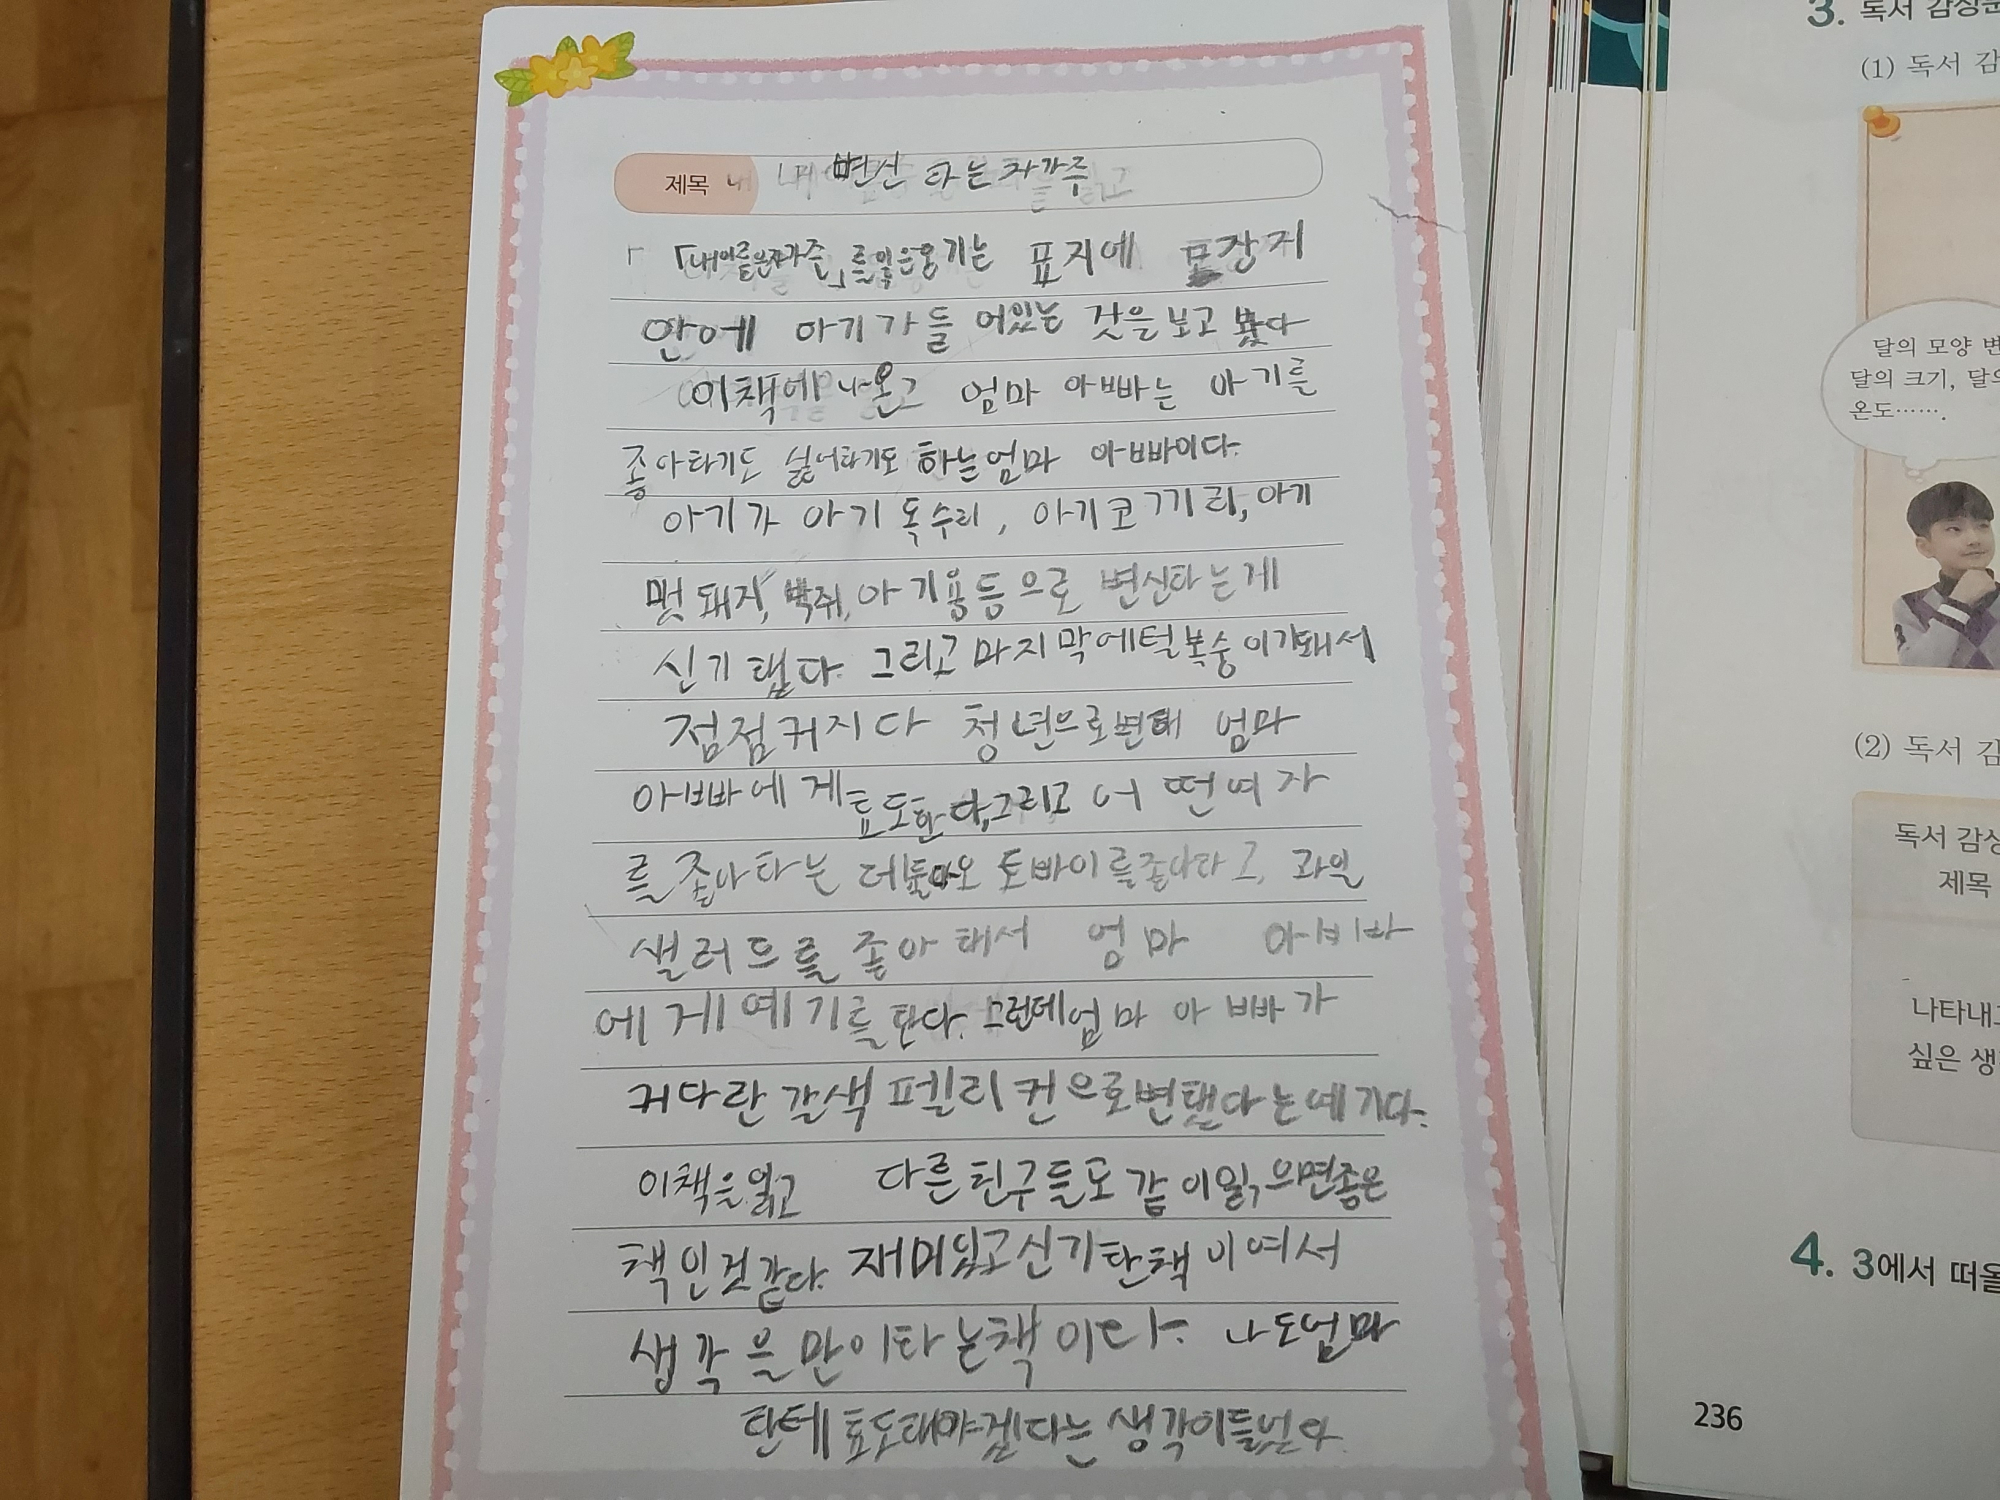 제목 변신 타는 자가주
「내이름은자가주」를읽은용기는 표지에 포장지
안에 아기가들 어있는 것을보고 봤다
이책에나온고 엄마 아빠는 아기를
좋아타기도 싫어타기도 하는엄마 아빠이다.
아기가 아기 독수리, 아기코끼리, 아기
멋돼지, 박쥐, 아기용등으로 변신타는게
신기탰다. 그리고마지막에털복숭이가돼서
점점커지다 청년으로변태 엄마
아빠에게 효도한다,그리고 어떤여자
를좋아타는데둘다오토바이를좋아타고, 과일
샐러드를 좋아태서 엄마 아빠
에게예기를탄다. 그런데엄마 아빠가
커다란 갈색 펠리컨으로변탰다는예기다.
이책을읽고 다른친구들도 같이읽으면좋은
책인것같다. 재미있고신기탄책이여서
생각을만이타는책이다. 나도엄마
탄테효도태야겠다는생각이들었다.
3. 독서 감상문
(1) 독서 감
달의 모양 변
달의 크기, 달의
온도…….
(2) 독서 감
독서 감상
제목
나타내고
싶은 생
4. 3에서 떠올
236